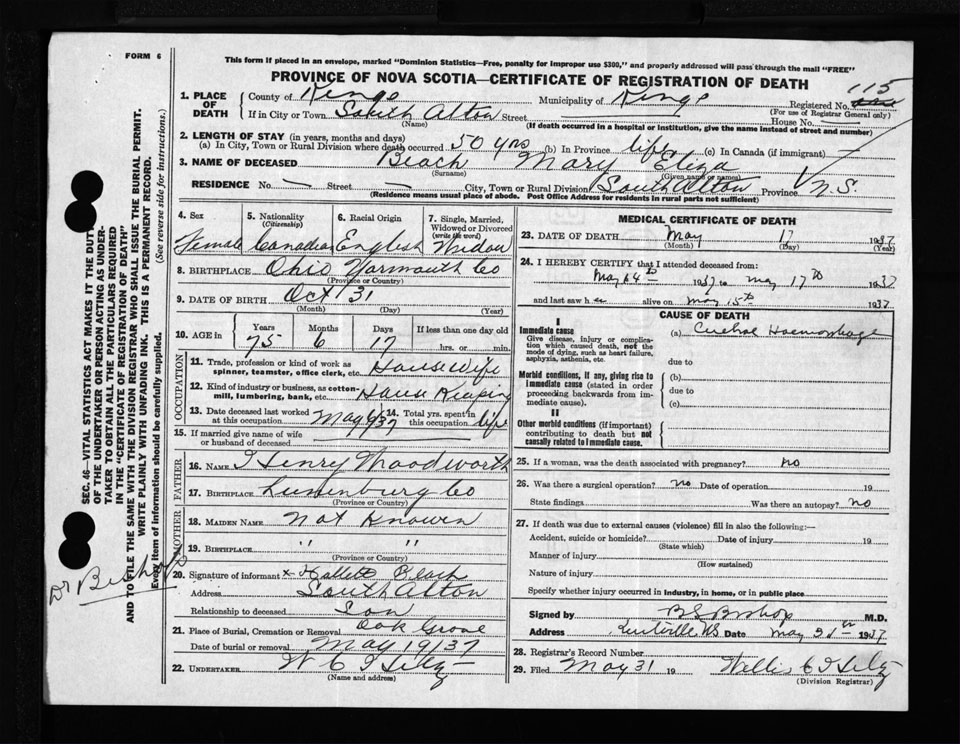 FORM 6
This form if placed in an envelope, marked "Dominion Statistics—Free, penalty for improper use $300," and properly addressed will pass through the mail "FREE"
PROVINCE OF NOVA SCOTIA—CERTIFICATE OF REGISTRATION OF DEATH
SEC. 46—VITAL STATISTICS ACT MAKES IT THE DUTY
OF THE UNDERTAKER OR PERSON ACTING AS UNDER-
TAKER TO OBTAIN ALL THE PARTICULARS REQUIRED
IN THE "CERTIFICATE OF REGISTRATION OF DEATH"
AND TO FILE THE SAME WITH THE DIVISION REGISTRAR WHO SHALL ISSUE THE BURIAL PERMIT.
WRITE PLAINLY WITH UNFADING INK. THIS IS A PERMANENT RECORD.
Every item of information should be carefully supplied. (See reverse side for instructions.)
Dr Bishop
1. PLACE OF DEATH County of Kings Municipality of Kings Registered No. 115
(For use of Registrar General only)
If in City or Town South Alton Street House No.
(Name) (If death occurred in a hospital or institution, give the name instead of street and number)
2. LENGTH OF STAY (in years, months and days)
(a) In City, Town or Rural Division where death occurred 50 yrs (b) In Province life (c) In Canada (if immigrant)
3. NAME OF DECEASED Beach Mary Eliza
(Surname) (Given name or names)
RESIDENCE No. — Street — City, Town or Rural Division South Alton Province N.S.
(Residence means usual place of abode. Post Office Address for residents in rural parts not sufficient)
4. Sex 5. Nationality (Citizenship) 6. Racial Origin 7. Single, Married, Widowed or Divorced (write the word)
Female Canadian English Widow
8. BIRTHPLACE Ohio Yarmouth Co
(Province or Country)
9. DATE OF BIRTH Oct 31
(Month) (Day) (Year)
10. AGE in Years Months Days If less than one day old
75 6 17 hrs. or min.
OCCUPATION
11. Trade, profession or kind of work as spinner, teamster, office clerk, etc. Housewife
12. Kind of industry or business, as cotton-mill, lumbering, bank, etc. House Keaping
13. Date deceased last worked at this occupation May 1937 14. Total yrs. spent in this occupation life
15. If married give name of wife or husband of deceased
FATHER
16. NAME Henry Woodworth
17. BIRTHPLACE Lunenburg Co
(Province or Country)
MOTHER
18. MAIDEN NAME Not Known
19. BIRTHPLACE " "
(Province or Country)
20. Signature of informant x Hallett Beach
Address South Alton
Relationship to deceased Son
21. Place of Burial, Cremation or Removal Oak Grove
Date of burial or removal May 19/37
22. UNDERTAKER W C
(Name and address)
MEDICAL CERTIFICATE OF DEATH
23. DATE OF DEATH May 17 1937
(Month) (Day) (Year)
24. I HEREBY CERTIFY that I attended deceased from:
May 14th 1937 to May 17th 1937
and last saw h er alive on May 15th 1937
CAUSE OF DEATH
I
Immediate cause
Give disease, injury or complication which caused death, not the mode of dying, such as heart failure, asphyxia, asthenia, etc.
(a) Cerebral Haemorrhage
due to
Morbid conditions, if any, giving rise to immediate cause (stated in order proceeding backwards from immediate cause).
(b)
due to
(c)
II
Other morbid conditions (if important) contributing to death but not causally related to immediate cause.
25. If a woman, was the death associated with pregnancy? no
26. Was there a surgical operation? no Date of operation 19
State findings Was there an autopsy? no
27. If death was due to external causes (violence) fill in also the following:—
Accident, suicide or homicide? Date of injury 19
(State which)
Manner of injury
(How sustained)
Nature of injury
Specify whether injury occurred in industry, in home, or in public place
Signed by B S Bishop M.D.
Address Kentville N.S. Date May 21st 1937
28. Registrar's Record Number
29. Filed May 31 19 Willis C
(Division Registrar)